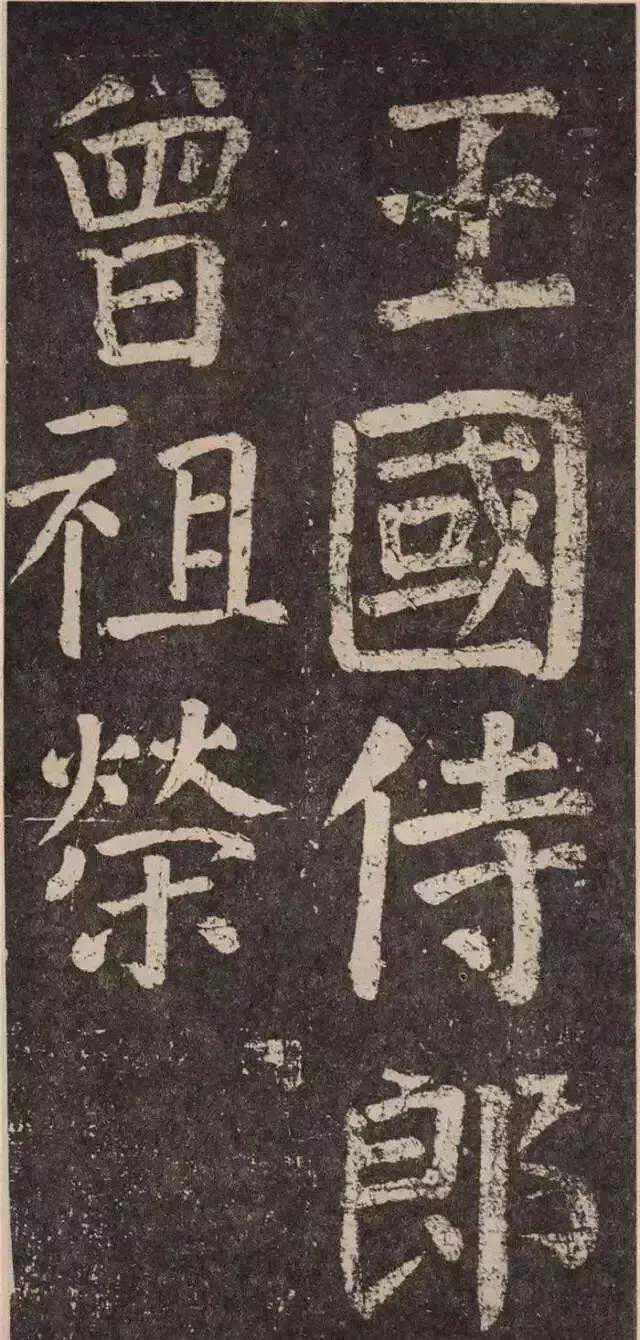 王國侍郎
曾祖榮